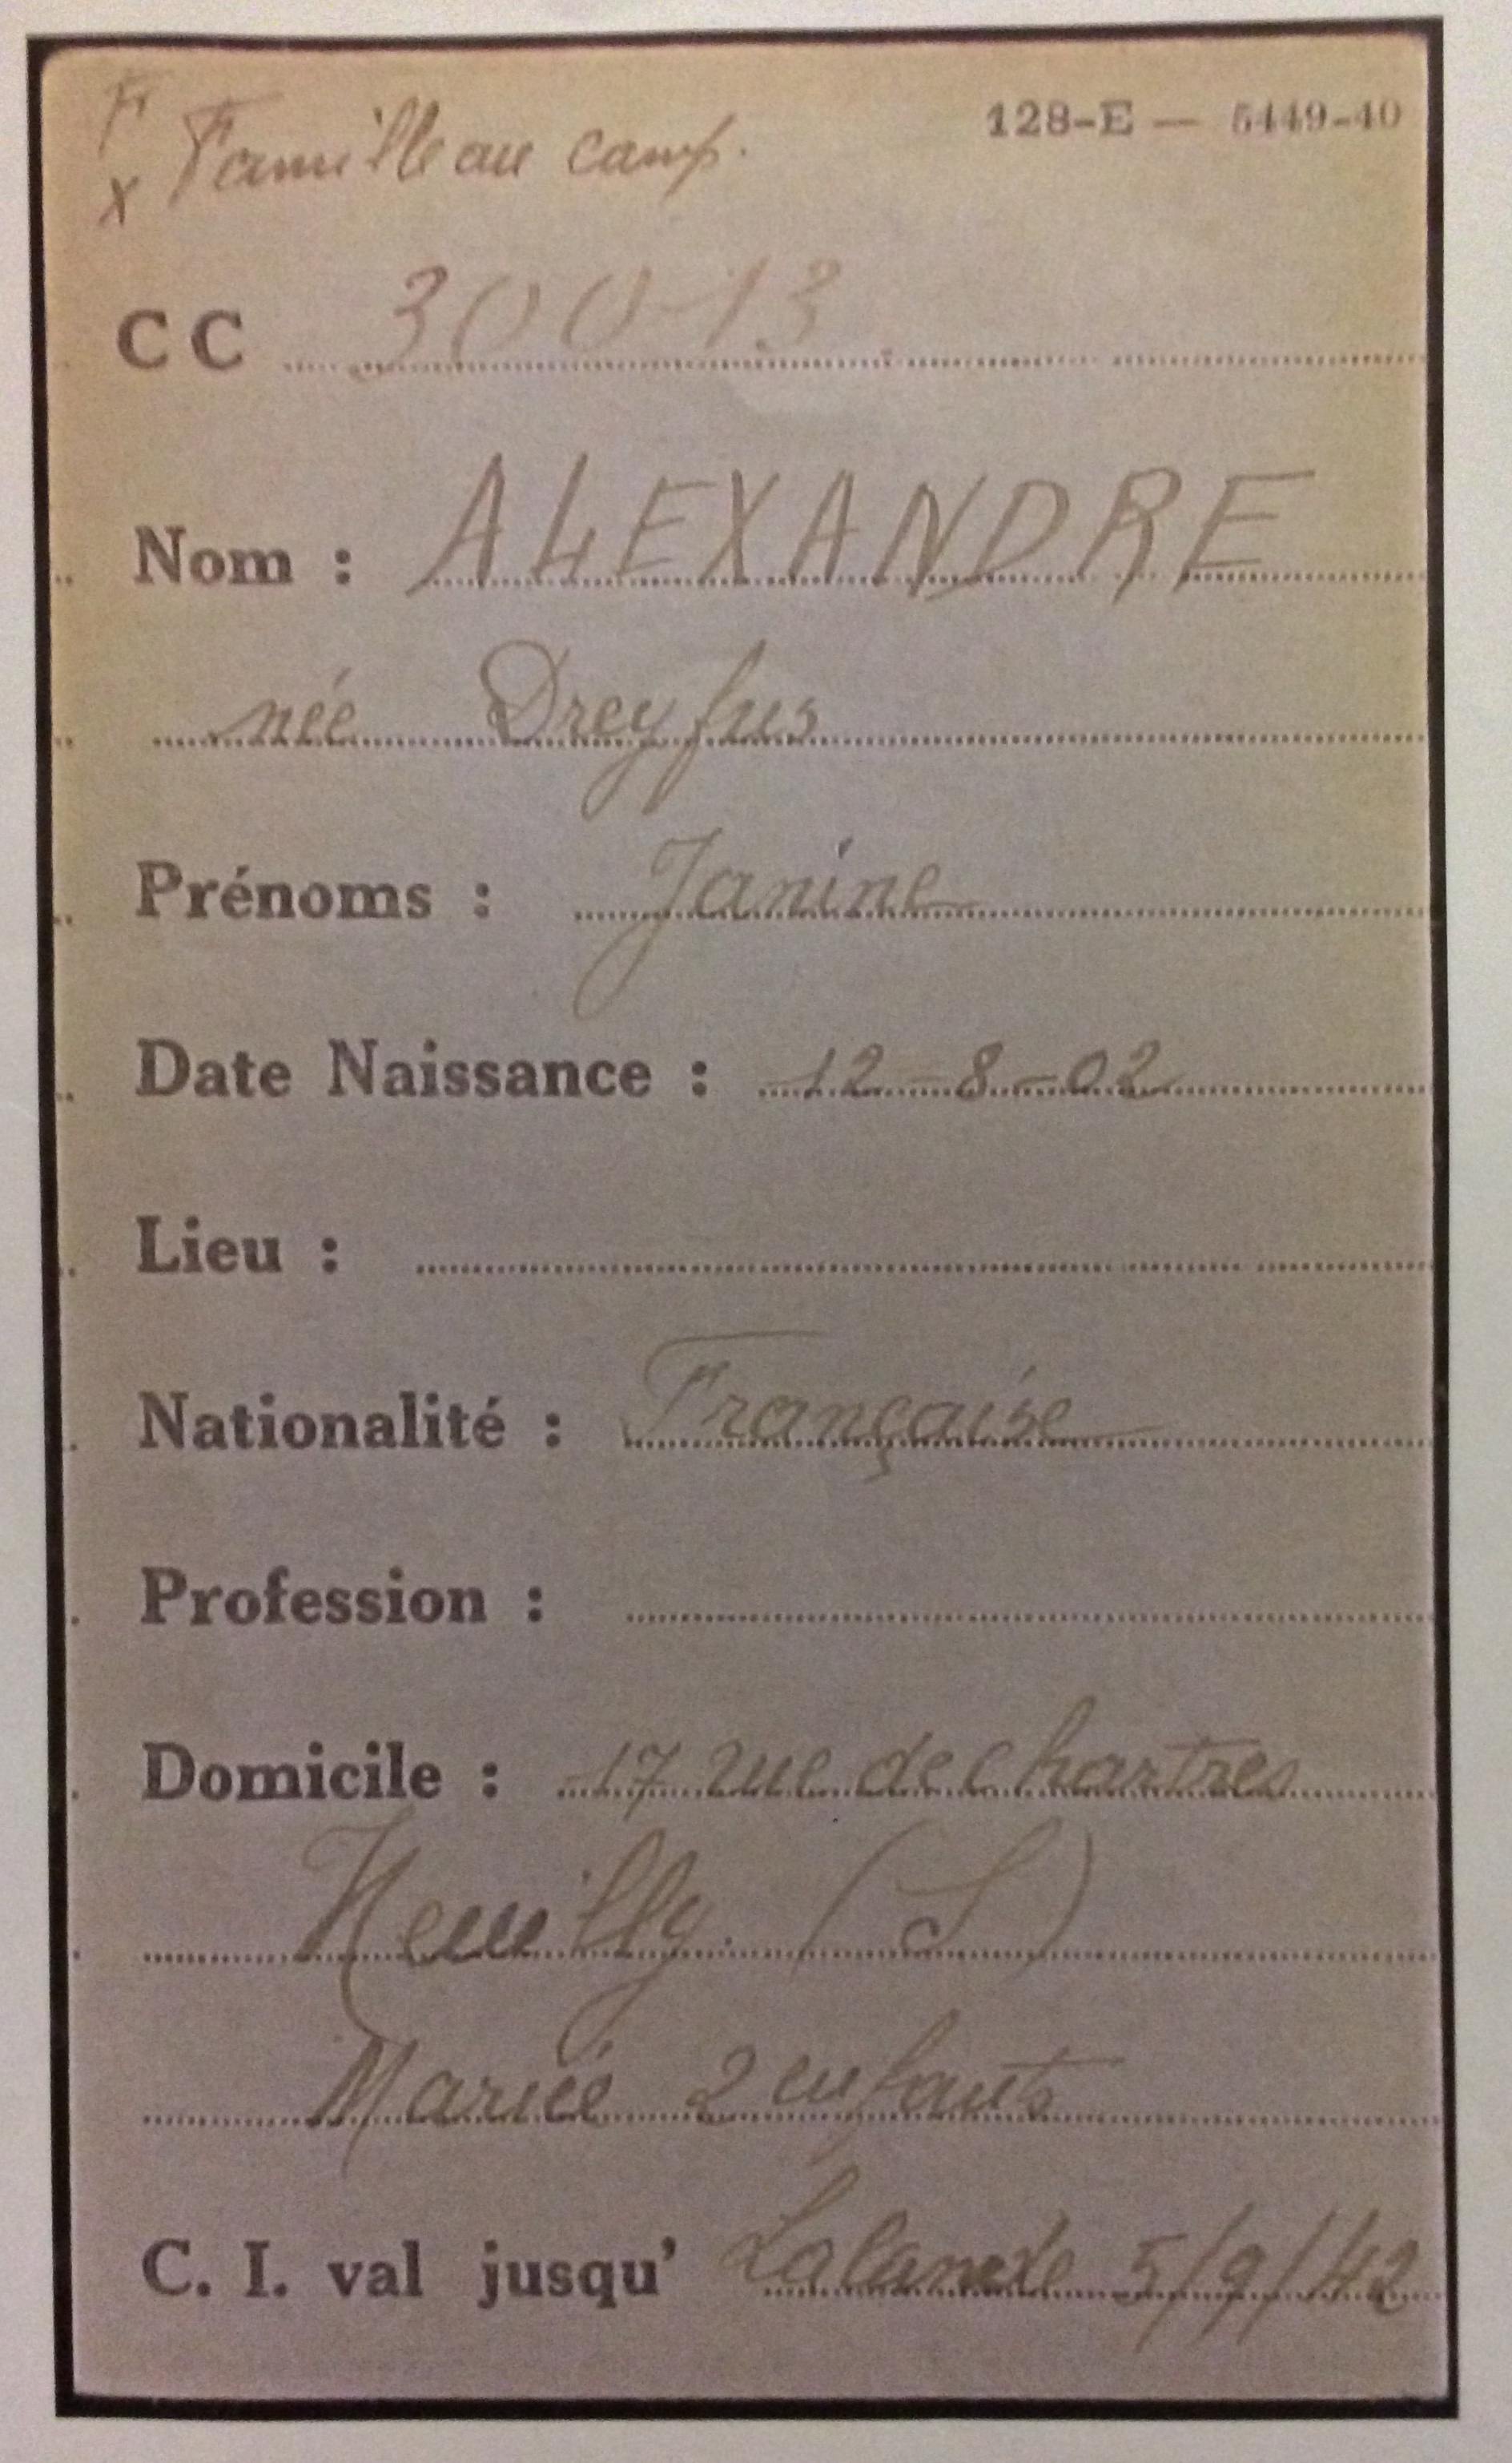 F
x Famille au camp.
128-E — 5449-40
CC 30013
Nom : ALEXANDRE
née Dreyfus
Prénoms : Janine
Date Naissance : 12-8-02
Lieu :
Nationalité : Française
Profession :
Domicile : 17 rue de chartres
Neuilly. (S)
Mariée 2 enfants
C. I. val jusqu' Lalande 5/9/42